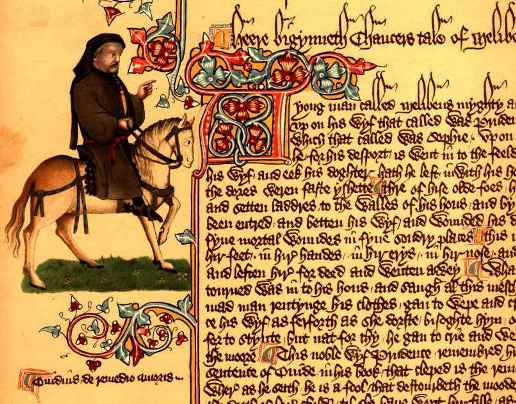 Heere bigynneth Chaucers tale of Melibe
A yong man called Melibeus myghty a
up on his wyf that called was Pruden
which that called was Sophie / Upon
he for his desport is went in to the feeld
his wyf and eek his doghter hath he left in with his h
the dores weren faste yshette / thre of hise olde foes h
and setten laddres to the walles of his hous / and by
been entred / and betten his wyf / and wounded his d
fyue mortal woundes in fyue sondry places / this is
hir feet / in hir handes / in hir erys / in hir nose / and
and leften hir for deed and wenten awey / Wha
torned was in to his hous / and saugh al this mesch
mad man rentynge his clothes / gan to wepe and cr
his wyf as ferforth as she dorste / bisoghte hym o
for to stynte / but nat for thy he gan to crie and we
the moore / This noble wyf Prudence remembred hir
sentence of Ovide in his book that cleped is the reme
wher as he seith / he is a fool that destourbeth the mooder
Ouidius de remedio amoris